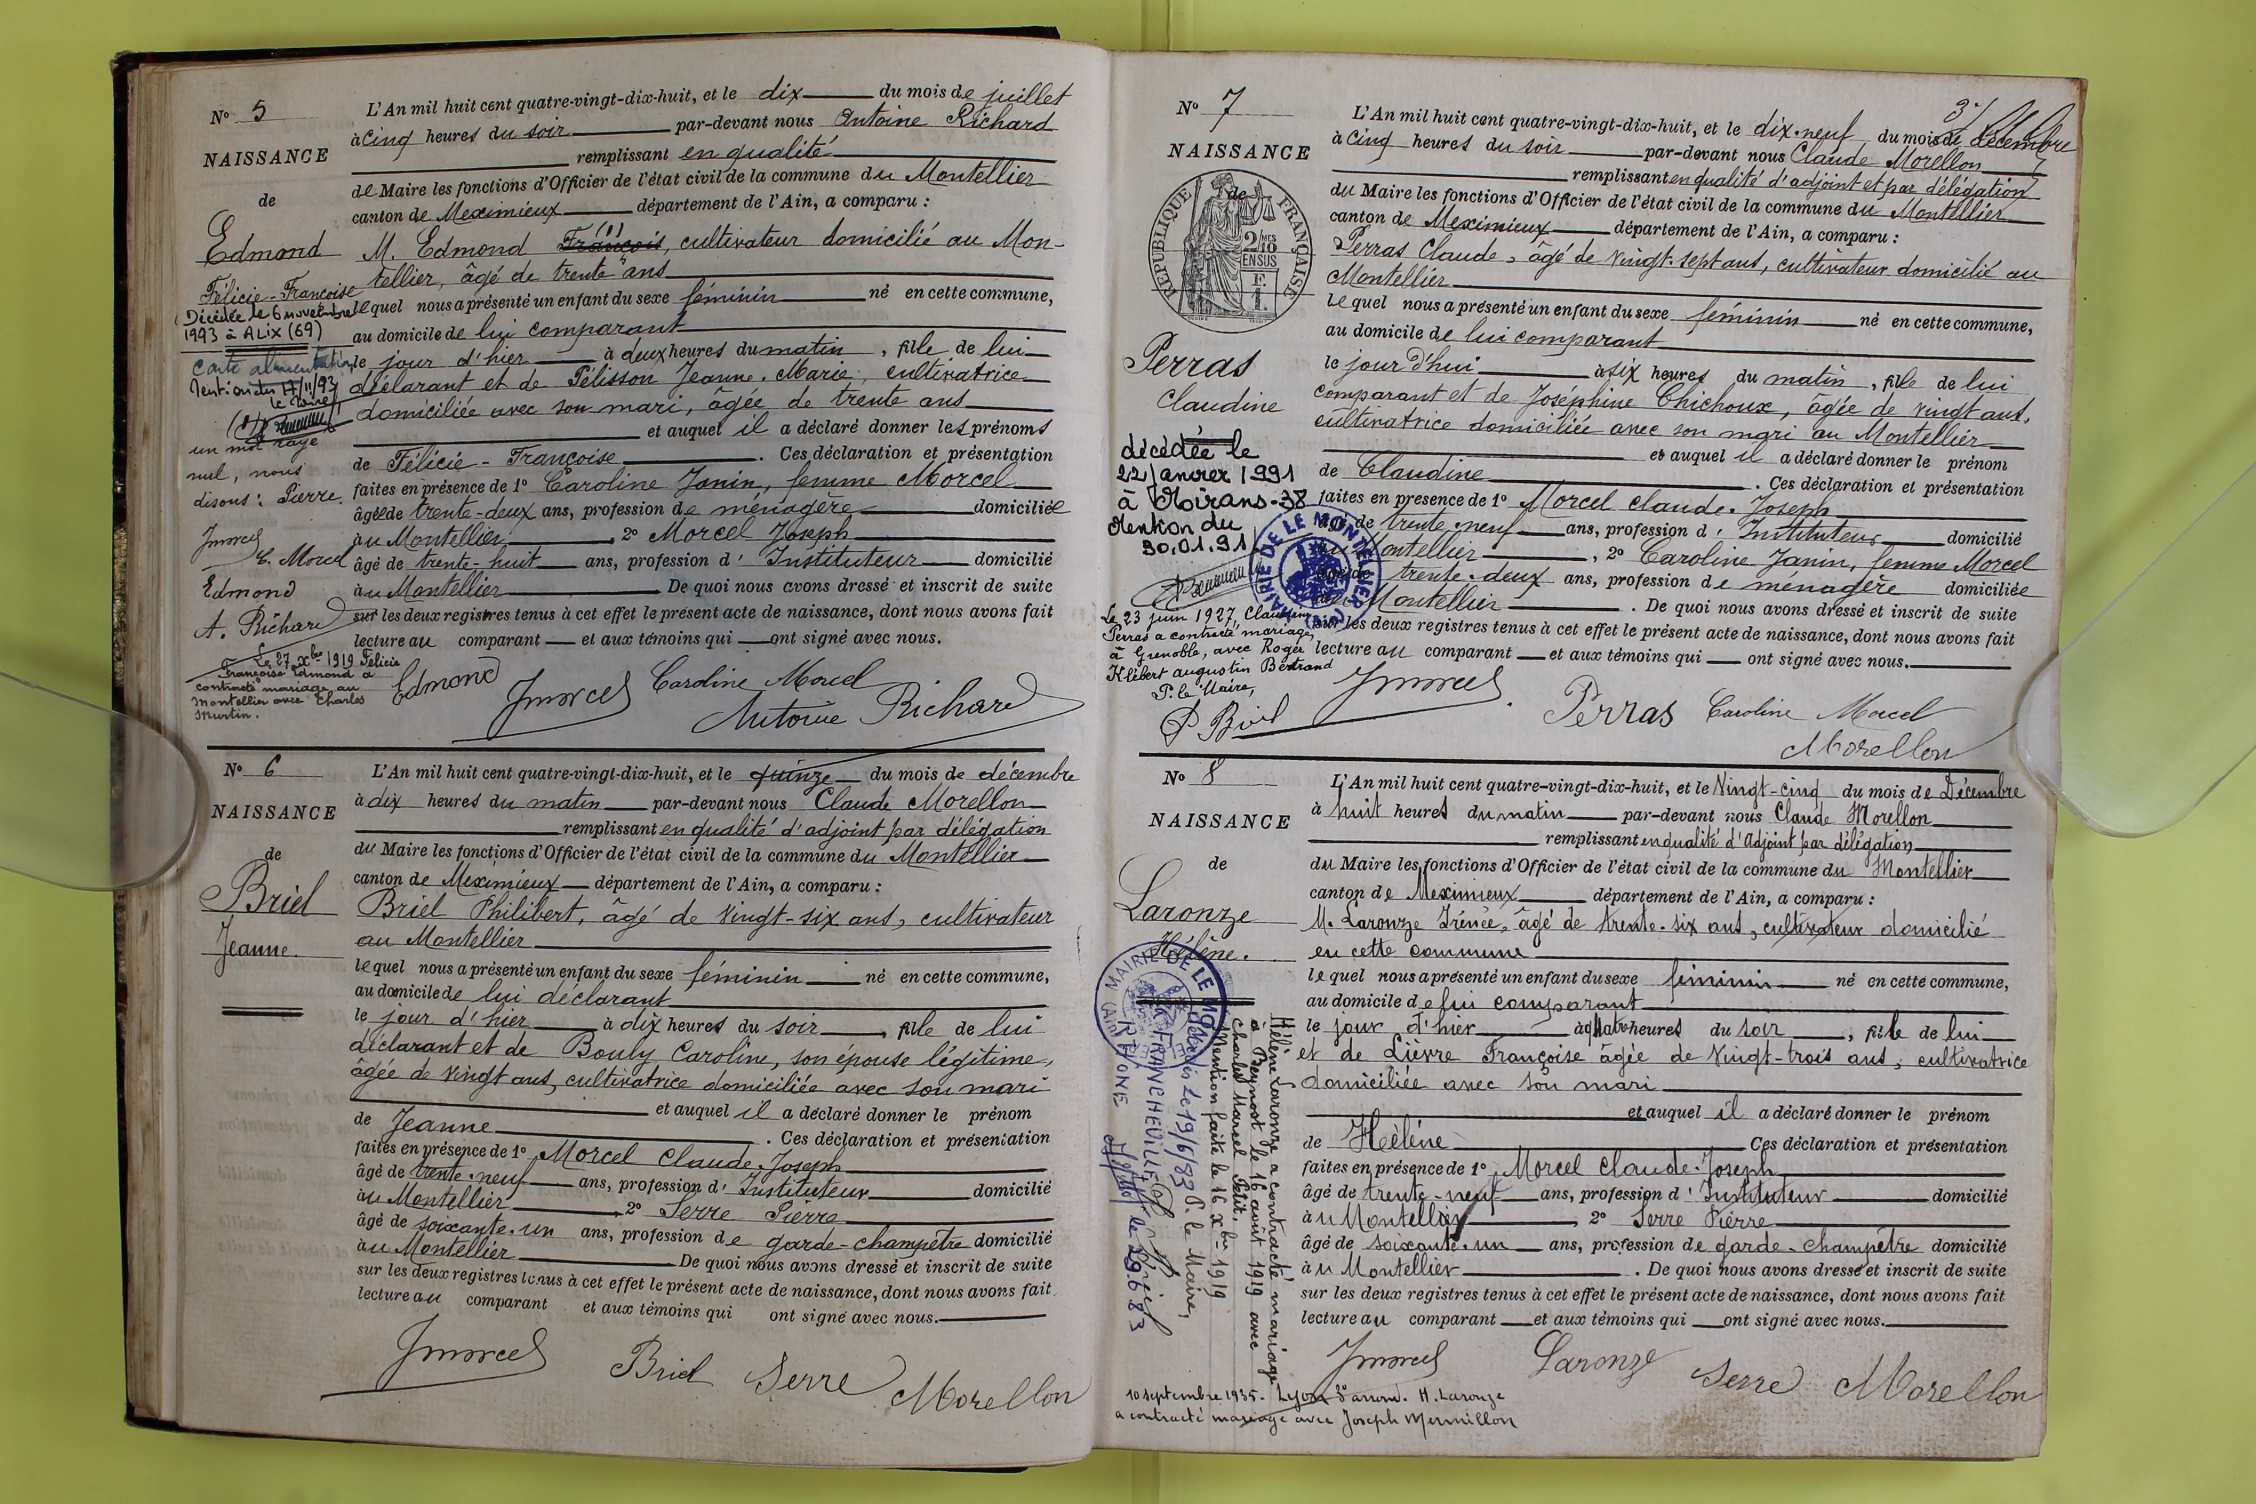 N° 5
NAISSANCE
de
Edmond
Félicie-Françoise
Décédée le 6 novembre
1993 à ALIX (69)
carte alimentation
Mention du 17/11/93
le Maire
(1)
un mot rayé
nul, nous
disons : Pierre.
Jmorcel
C. Morcel
Edmond
A. Richard
Le 27 xbre 1919 Félicie
Françoise Edmond a
contracté mariage au
Montellier avec Charles
Murtin.
L'An mil huit cent quatre-vingt-dix-huit, et le dix du mois de juillet
à cinq heures du soir par-devant nous Antoine Richard
remplissant en qualité
de Maire les fonctions d'Officier de l'état civil de la commune du Montellier
canton de Meximieux département de l'Ain, a comparu :
M. Edmond François (1), cultivateur domicilié au Mon-
tellier, âgé de trente ans
lequel nous a présenté un enfant du sexe féminin né en cette commune,
au domicile de lui comparant
le jour d'hier à deux heures du matin, fille de lui
déclarant et de Pélisson Jeanne-Marie, cultivatrice
domiciliée avec son mari, âgée de trente ans
et auquel il a déclaré donner les prénoms
de Félicie-Françoise. Ces déclaration et présentation
faites en présence de 1° Caroline Janin, femme Morcel
âgée de trente-deux ans, profession de ménagère domiciliée
au Montellier, 2° Morcel Joseph
âgé de trente-huit ans, profession d'Instituteur domicilié
au Montellier De quoi nous avons dressé et inscrit de suite
sur les deux registres tenus à cet effet le présent acte de naissance, dont nous avons fait
lecture au comparant et aux témoins qui ont signé avec nous.
Edmond Jmorcel Caroline Morcel
Antoine Richard
N° 6
NAISSANCE
de
Briel
Jeanne.
L'An mil huit cent quatre-vingt-dix-huit, et le quinze du mois de décembre
à dix heures du matin par-devant nous Claude Morellon
remplissant en qualité d'adjoint par délégation
du Maire les fonctions d'Officier de l'état civil de la commune du Montellier
canton de Meximieux département de l'Ain, a comparu :
Briel Philibert, âgé de vingt-six ans, cultivateur
au Montellier
lequel nous a présenté un enfant du sexe féminin né en cette commune,
au domicile de lui déclarant
le jour d'hier à dix heures du soir, fille de lui
déclarant et de Bouly Caroline, son épouse légitime,
âgée de vingt ans, cultivatrice domiciliée avec son mari
et auquel il a déclaré donner le prénom
de Jeanne. Ces déclaration et présentation
faites en présence de 1° Morcel Claude-Joseph
âgé de trente-neuf ans, profession d'Instituteur domicilié
au Montellier, 2° Serre Pierre
âgé de soixante-un ans, profession de garde-champêtre domicilié
au Montellier De quoi nous avons dressé et inscrit de suite
sur les deux registres tenus à cet effet le présent acte de naissance, dont nous avons fait
lecture au comparant et aux témoins qui ont signé avec nous.
Jmorcel Briel Serre Morellon
N° 7
NAISSANCE
de
RÉPUBLIQUE FRANÇAISE
2/10 MES
EN SUS
F.
1.
Perras
Claudine
décédée le
22 Janvier 1991
à Moirans-38
Mention du
30.01.91
MAIRIE DE LE MONTELLIER
Le 23 juin 1927, Claudine
Perras a contracté mariage,
à Grenoble, avec Roger
Klébert Augustin Bertrand
P. le Maire,
P Briel
3e
L'An mil huit cent quatre-vingt-dix-huit, et le dix-neuf du mois de décembre
à cinq heures du soir par-devant nous Claude Morellon
remplissant en qualité d'adjoint et par délégation
du Maire les fonctions d'Officier de l'état civil de la commune du Montellier
canton de Meximieux département de l'Ain, a comparu :
Perras Claude, âgé de vingt-sept ans, cultivateur domicilié au
Montellier
lequel nous a présenté un enfant du sexe féminin né en cette commune,
au domicile de lui comparant
le jour d'hui à six heures du matin, fille de lui
comparant et de Joséphine Chichoux, âgée de vingt ans,
cultivatrice domiciliée avec son mari au Montellier
et auquel il a déclaré donner le prénom
de Claudine. Ces déclaration et présentation
faites en présence de 1° Morcel Claude-Joseph
âgé de trente-neuf ans, profession d'Instituteur domicilié
au Montellier, 2° Caroline Janin, femme Morcel
âgée de trente-deux ans, profession de ménagère domiciliée
au Montellier. De quoi nous avons dressé et inscrit de suite
sur les deux registres tenus à cet effet le présent acte de naissance, dont nous avons fait
lecture au comparant et aux témoins qui ont signé avec nous.
Jmorcel Perras Caroline Morcel
Morellon
N° 8
NAISSANCE
de
Laronze
Hélène.
MAIRIE DE LE MONTELLIER (AIN)
Hélène Laronze a contracté mariage
à Beynost le 16 août 1919 avec
Charles Marcel Petit.
Mention faite le 16 xbre 1919
P. le Maire,
Briel
Décédée le 19/6/83
à FRANCHEVILLE
RHONE
le 29.6.83
L'An mil huit cent quatre-vingt-dix-huit, et le Vingt-cinq du mois de Décembre
à huit heures du matin par-devant nous Claude Morellon
remplissant en qualité d'Adjoint par délégation
du Maire les fonctions d'Officier de l'état civil de la commune du Montellier
canton de Meximieux département de l'Ain, a comparu :
M. Laronze Irénée, âgé de trente-six ans, cultivateur domicilié
en cette commune
lequel nous a présenté un enfant du sexe féminin né en cette commune,
au domicile de lui comparant
le jour d'hier à quatre heures du soir, fille de lui
et de Lièvre Françoise âgée de vingt-trois ans, cultivatrice
domiciliée avec son mari
et auquel il a déclaré donner le prénom
de Hélène Ces déclaration et présentation
faites en présence de 1° Morcel Claude-Joseph
âgé de trente-neuf ans, profession d'Instituteur domicilié
au Montellier, 2° Serre Pierre
âgé de soixante-un ans, profession de garde-champêtre domicilié
au Montellier. De quoi nous avons dressé et inscrit de suite
sur les deux registres tenus à cet effet le présent acte de naissance, dont nous avons fait
lecture au comparant et aux témoins qui ont signé avec nous.
Jmorcel Laronze Serre Morellon
10 septembre 1935. Lyon 3e arrond. H. Laronze
a contracté mariage avec Joseph Mermillon